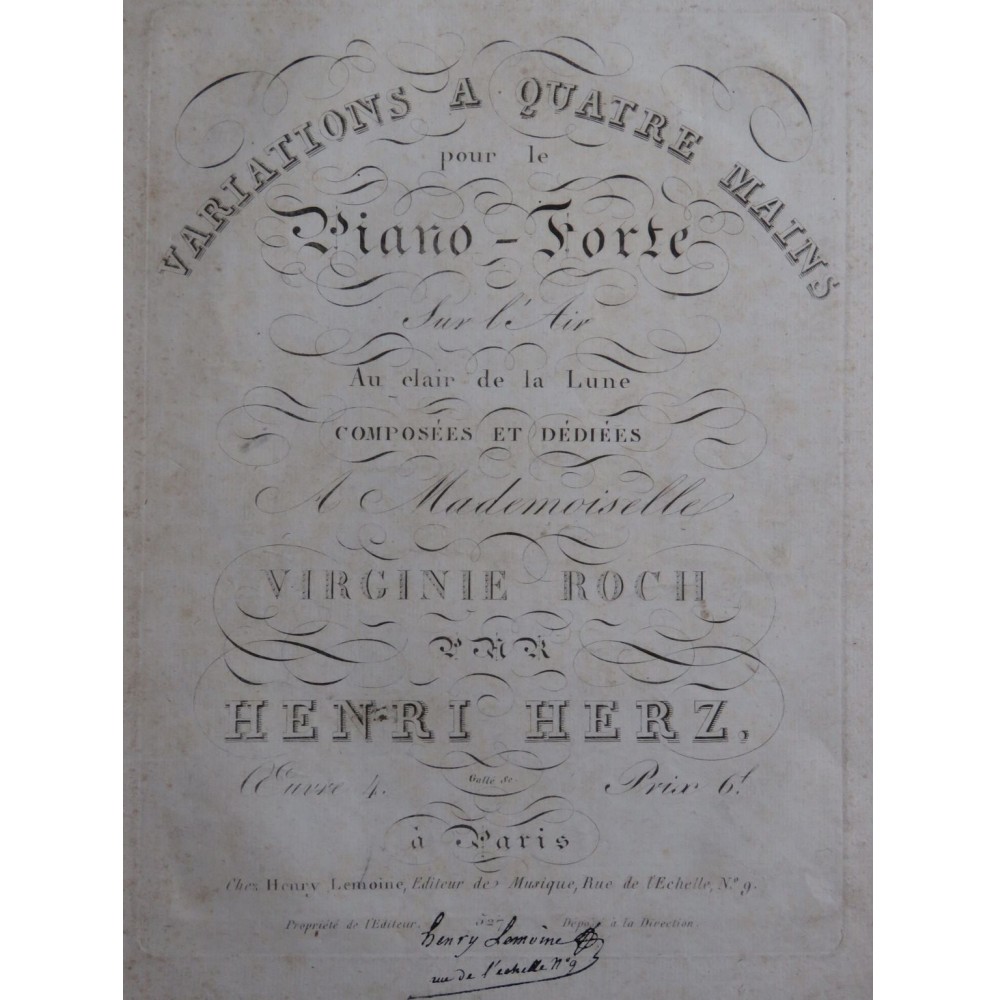 VARIATIONS A QUATRE MAINS
pour le
Piano-Forte
Sur l'Air
Au clair de la Lune
COMPOSÉES ET DÉDIÉES
A Mademoiselle
VIRGINIE ROCH
PAR
HENRI HERZ,
Œuvre 4. Prix 6f.
à Paris
Chez Henry Lemoine, Editeur de Musique, Rue de l'Echelle, N.o 9.
Propriété de l'Editeur. Déposé à la Direction.
henry Lemoine
rue de l'echelle N.o 9